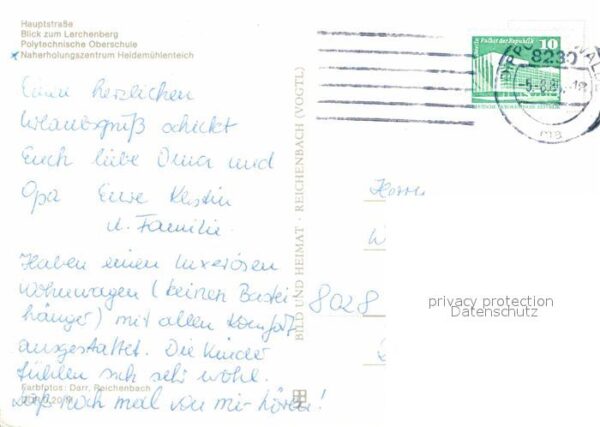 Hauptstraße
Blick zum Lerchenberg
Polytechnische Oberschule
x Naherholungszentrum Heidemühlenteich
Einen herzlichen
Urlaubsgruß schickt
Euch liebe Oma und
Opa Eure Kerstin
u. Familie.
Haben einen luxeriösen
Wohnwagen (keinen Bastei-
hänger) mit allen Komfort
ausgestattet. Die Kinder
fühlen sich sehr wohl.
Laß noch mal von mir hören!
Farbfotos: Darr, Reichenbach
BILD UND HEIMAT · REICHENBACH (VOGTL)
Palast der Republik
10
8230
Herrn
W
8028
privacy protection
Datenschutz